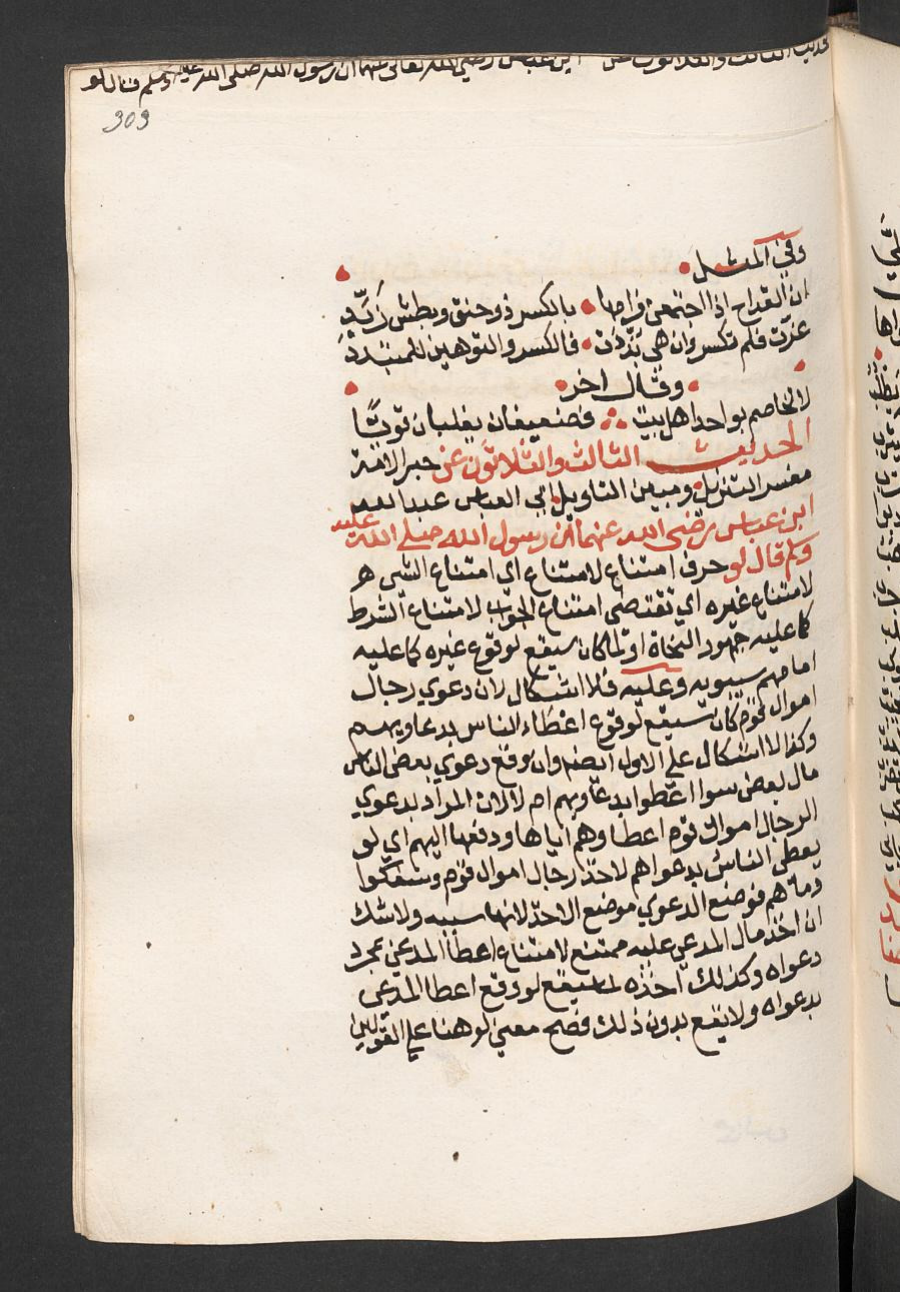 الحديث الثالث والثلاثون عن ابن عباس رضي الله تعالى عنهما ان رسول الله صلى الله عليه وسلم قال لو
309
وفي المثل
ان القداح اذا اجتمعن فرامها بالكسر ذو حنق وبطش ايد
عزت فلم تكسر وان هي بددت فالكسر والتوهين للمتبدد
وقال اخر
لا تخاصم بواحد اهل بيت فضعيفان يغلبان قويا
الحديث الثالث والثلاثون عن حبر الامة
مفسر التنزيل ومبين التاويل ابي العباس عبد الله
ابن عباس رضي الله عنهما ان رسول الله صلى الله عليه
وسلم قال لو حرف امتناع لامتناع اي امتناع الشي
لامتناع غيره اي تقتضي امتناع الجواب لامتناع الشرط
كما عليه جمهور النحاة او لما كان سيقع لوقوع غيره كما عليه
امامهم سيبويه وعليه فلا اشكال لان دعوي رجال
اموال قوم كان سيقع لوقوع اعطاء الناس بدعاويهم
وكذا لا اشكال علي الاول ايضا وان وقع دعوي بعض الناس
مال بعض سوا اعطوا بدعاويهم ام لا لان المراد بدعوي
الرجال اموال قوم اعطاوهم اياها ودفعها اليهم اي لو
يعطى الناس بدعواهم لاخذ رجال اموال قوم وسفكوا
دماهم فوضع الدعوي موضع الاخذ لانها سببه ولا شك
ان اخذ مال المدعي عليه ممتنع لامتناع اعطا المدعي بمجرد
دعواه وكذلك اخذه لما سيقع لو وقع اعطا المدعي
بدعواه ولا يقع بدون ذلك فصح معنى لو هنا علي القولين